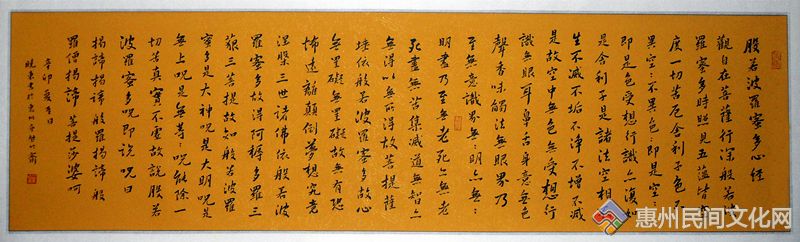 般若波羅蜜多心經
觀自在菩薩行深般若波
羅蜜多時照見五蘊皆空
度一切苦厄舍利子色不
異空〻不異色〻即是空〻
即是色受想行識亦復如
是舍利子是諸法空相不
生不滅不垢不淨不增不減
是故空中無色無受想行
識無眼耳鼻舌身意無色
聲香味觸法無眼界乃
至無意識界無〻明亦無〻
明盡乃至無老死亦無老
死盡無苦集滅道無智亦
無得以無所得故菩提薩
埵依般若波羅蜜多故心
無罣礙無罣礙故無有恐
怖遠離顛倒夢想究竟
涅槃三世諸佛依般若波
羅蜜多故得阿耨多羅三
藐三菩提故知般若波羅
蜜多是大神呪是大明呪是
無上呪是無等〻呪能除一
切苦真實不虛故說般若
波羅蜜多呪即說呪曰
揭諦揭諦般羅揭諦般
羅僧揭諦菩提莎婆呵
辛卯夏日
曉東書於
惠州民间文化网